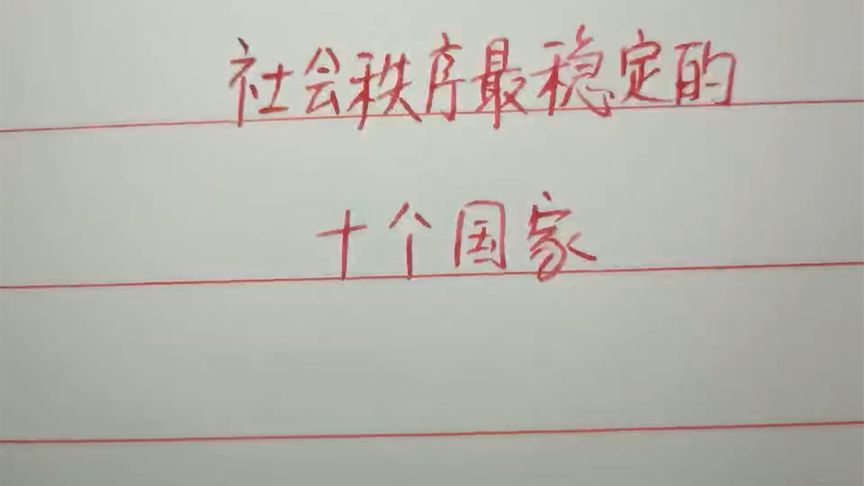 社会秩序最稳定的
十个国家